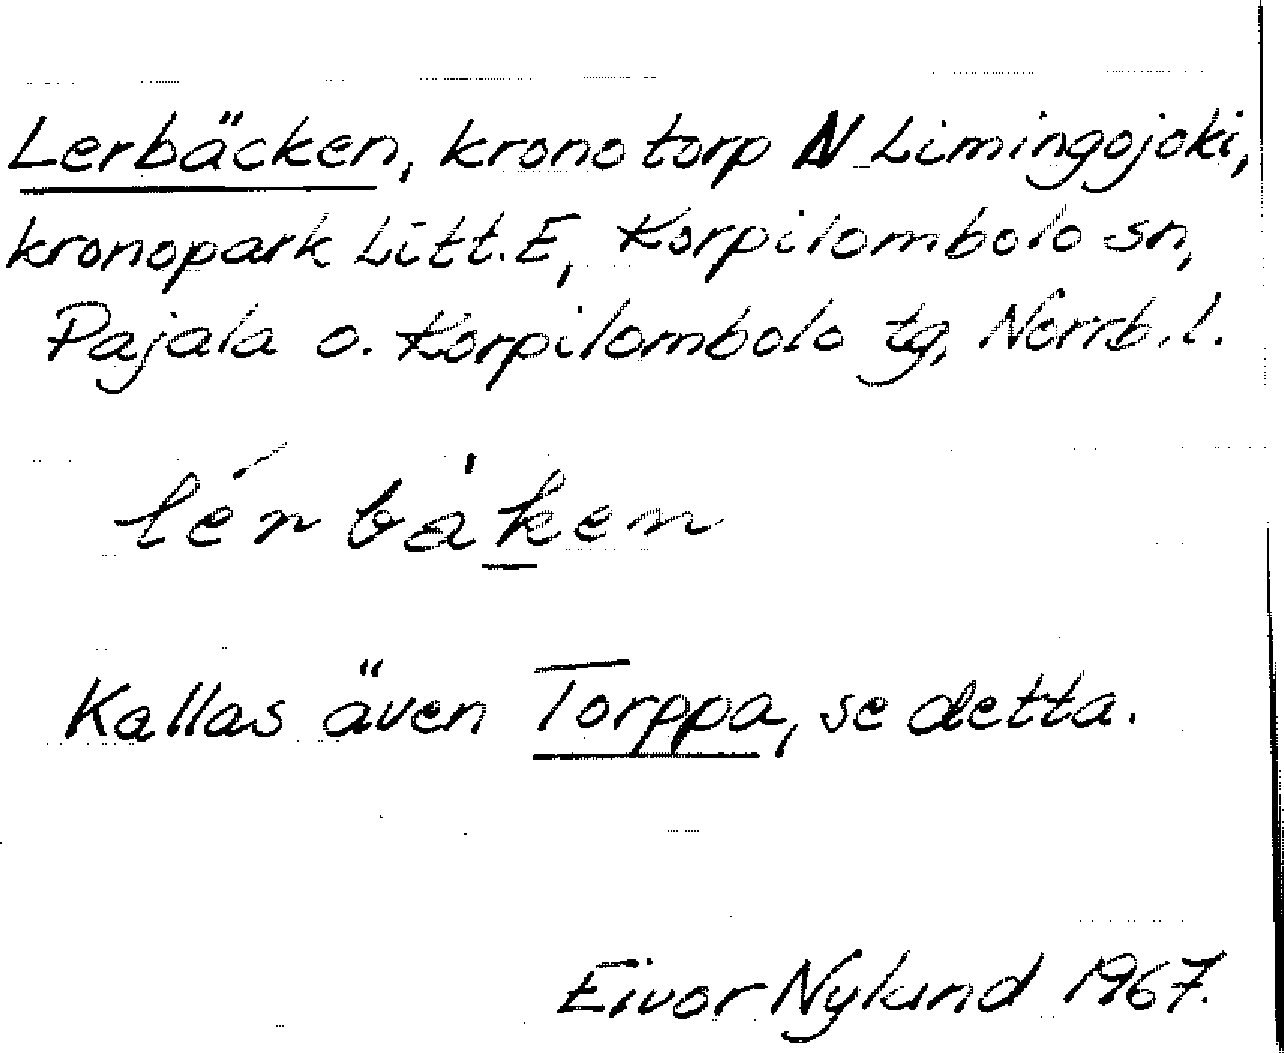 Lerbäcken, kronotorp N Limingojoki,
kronopark Litt. E, Korpilombolo sn,
Pajala o. Korpilombolo tg, Norrb. l.
lérbä̀ken
Kallas även Torppa, se detta.
Eivor Nylund 1967.